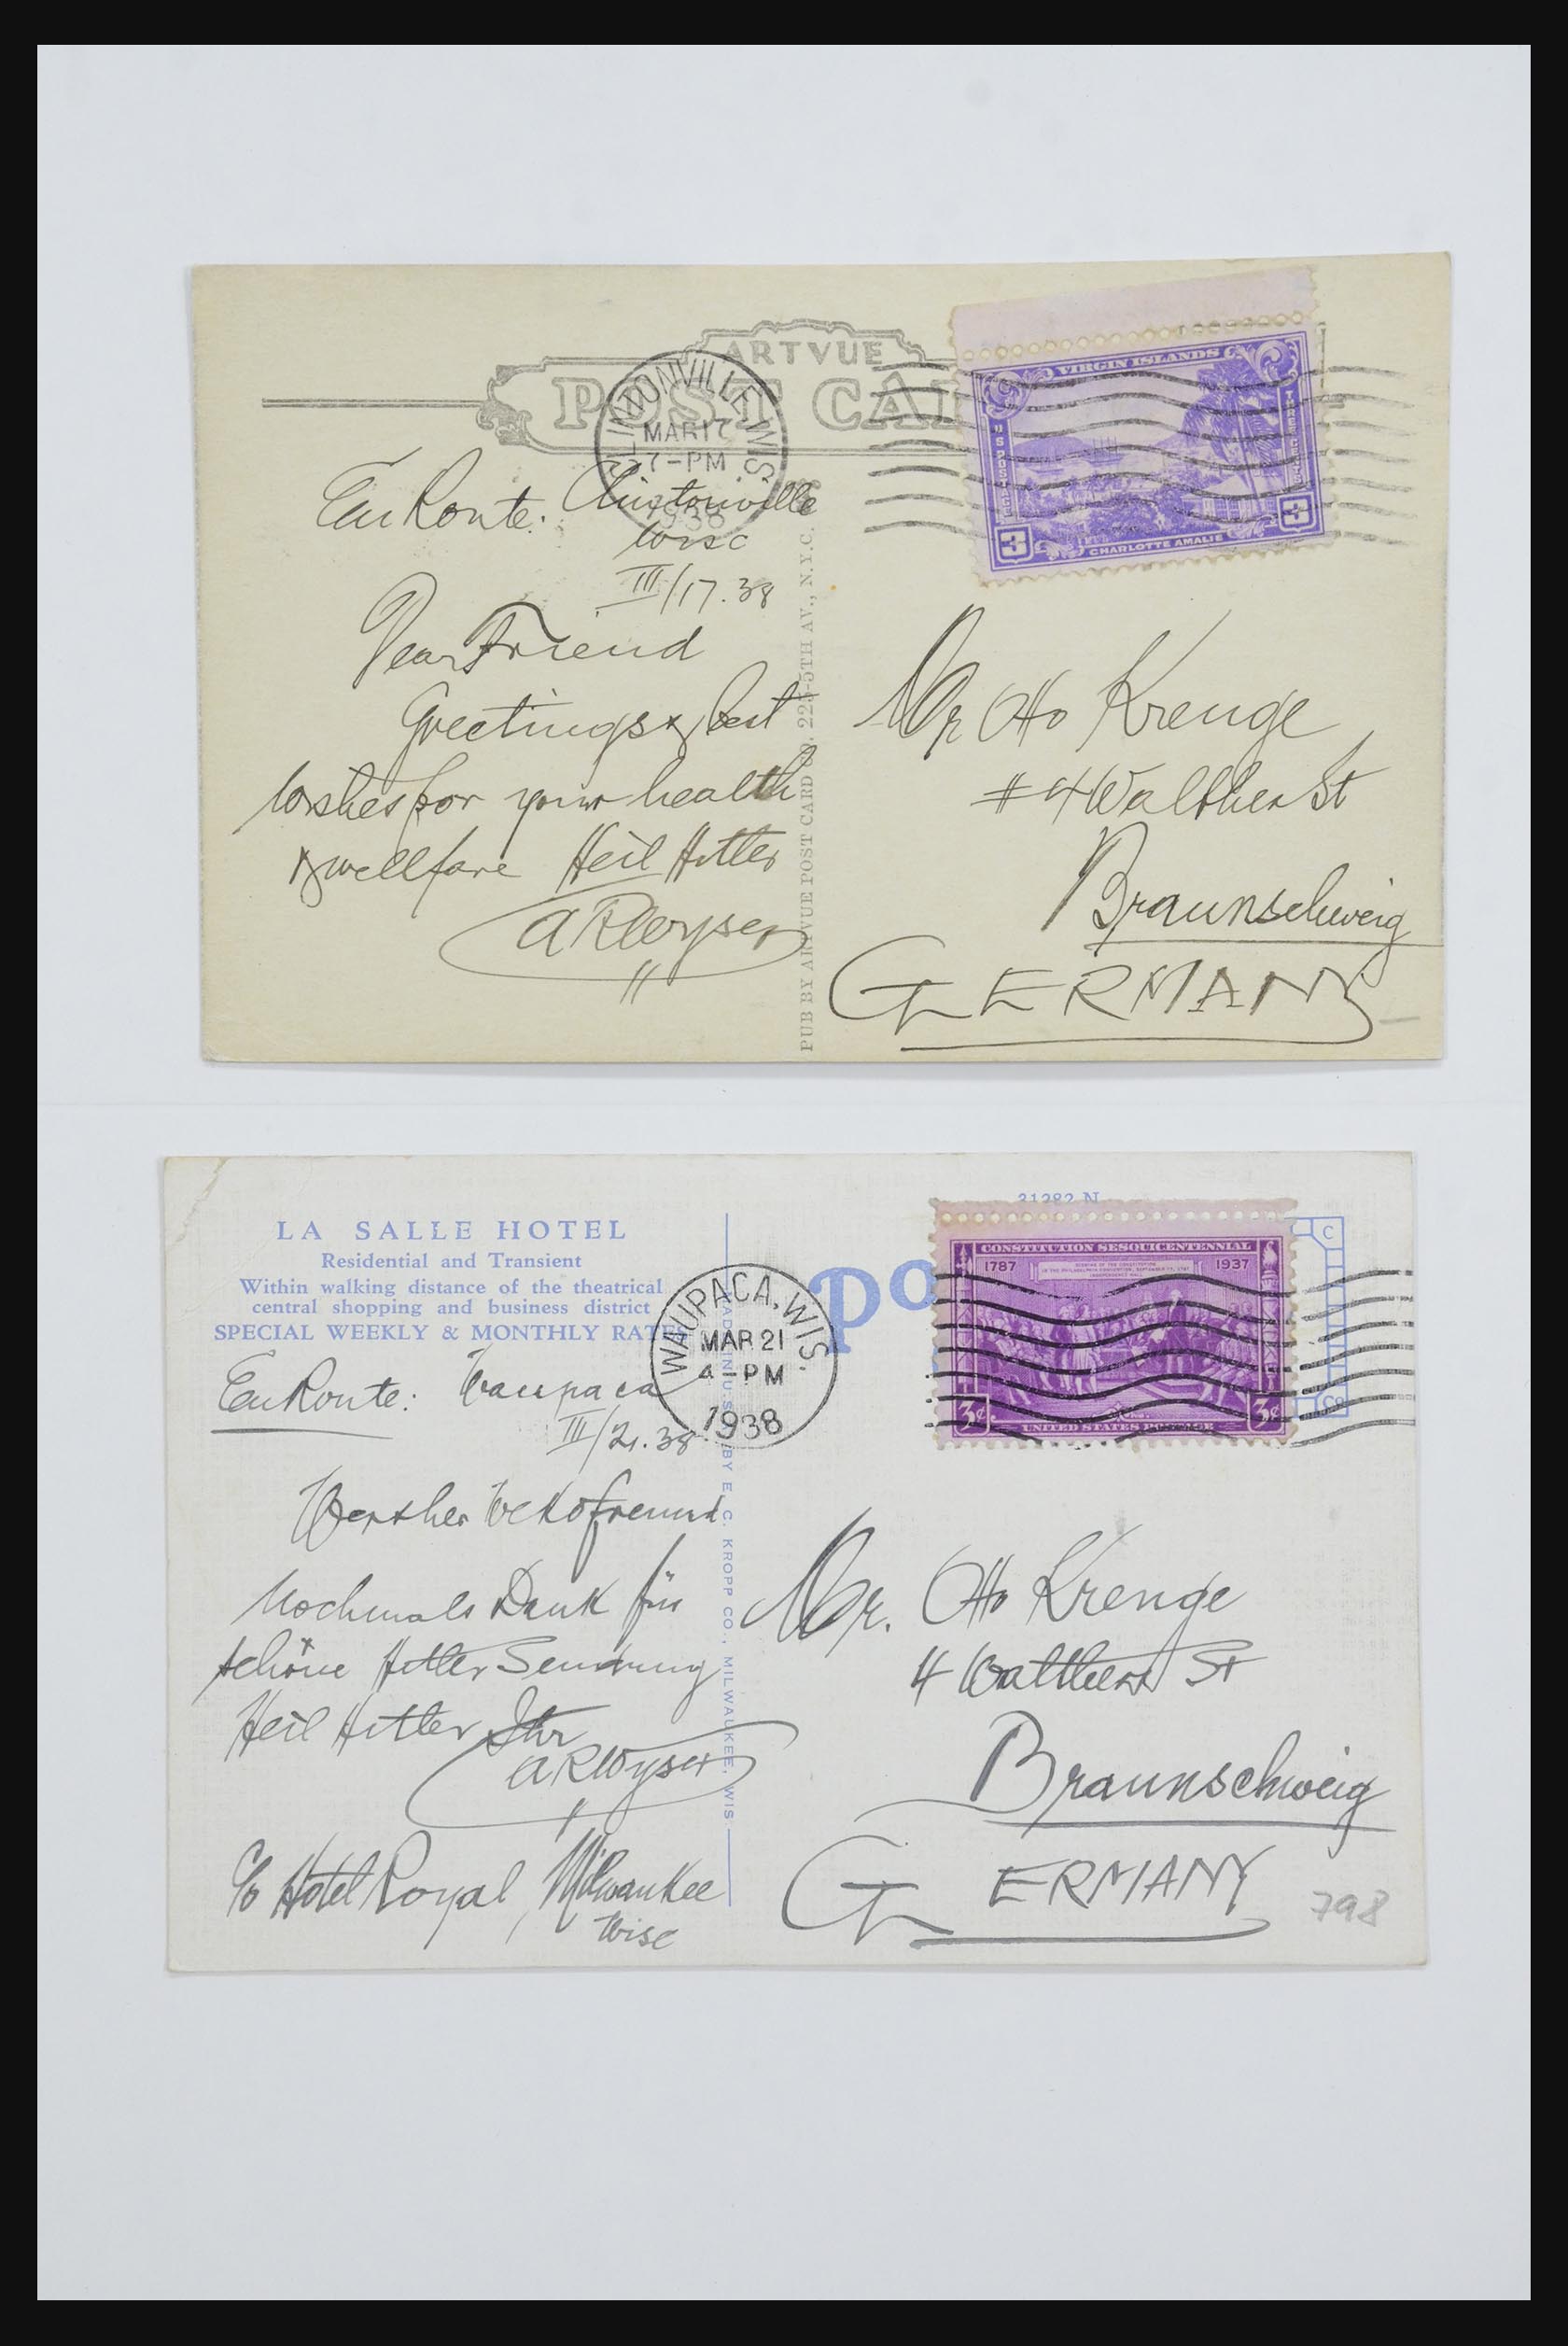 ARTVUE
POST CA
CLINTONVILLE, WIS.
MAR 17
7-PM
1938
VIRGIN ISLANDS
U S POSTAGE
THREE CENTS
3
3
CHARLOTTE AMALIE
En Route: Clintonville
Wisc
III/17.38
Dear Friend
Greetings & best
wishes for your health
& wellfare Heil Hitler
A R Wyser
PUB BY ARTVUE POST CARD CO. 225-5TH AV., N.Y.C.
Mr Otto Krenge
#4 Walther St
Braunschweig
GERMANY
LA SALLE HOTEL
Residential and Transient
Within walking distance of the theatrical
central shopping and business district
SPECIAL WEEKLY & MONTHLY RATES
31282 N
Po
C
Co
WAUPACA, WIS.
MAR 21
4-PM
1938
CONSTITUTION SESQUICENTENNIAL
1787
1937
3¢
3¢
UNITED STATES POSTAGE
En Route: Waupaca
III/21.38
Werther Vekofreund
Nochmals Dank für
schöne Hitler Sendung
Heil Hitler Ihr
A R Wyser
C/o Hotel Royal, Milwaukee
Wisc
MADE IN U.S.A. BY E. C. KROPP CO., MILWAUKEE, WIS.
Mr. Otto Krenge
4 Walther St
Braunschweig
GERMANY
798